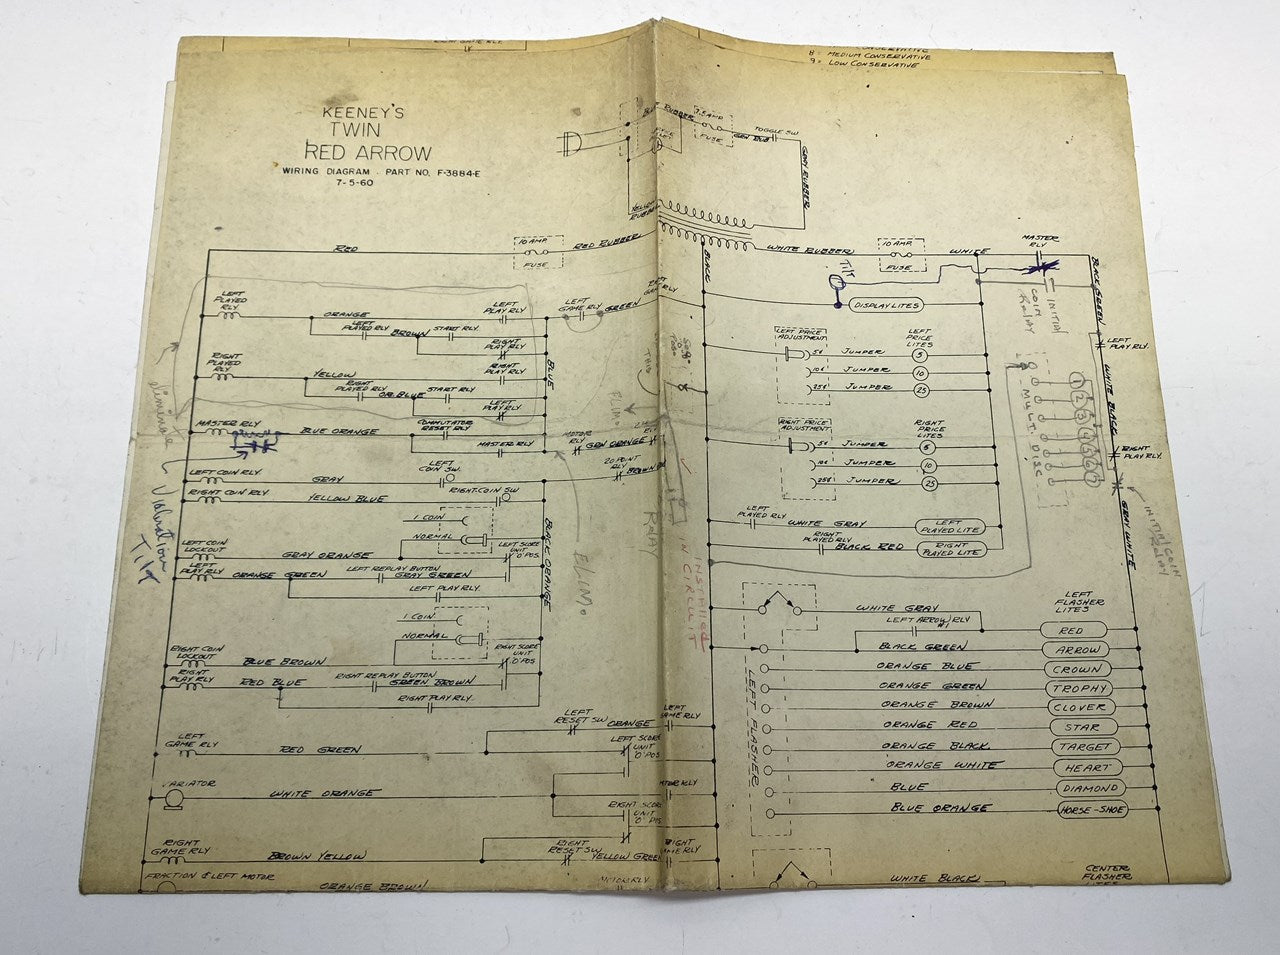 8 = MEDIUM CONSERVATIVE
9 = LOW CONSERVATIVE
KEENEY'S
TWIN
RED ARROW
WIRING DIAGRAM . PART NO. F-3884-E
7-5-60
RUBBER
7.5 AMP
FUSE
TOGGLE SW
GRAY RUBBER
YELLOW
RUBBER
RED
10 AMP.
FUSE
RED RUBBER
BLACK
WHITE RUBBER
10 AMP.
FUSE
WHITE
MASTER
RLY
BLACK GREEN
Tilt
DISPLAY LITES
INITIAL
COIN
Relay
LEFT
PLAYED
RLY
ORANGE
LEFT
PLAY RLY
LEFT
GAME RLY
GREEN
LEFT
GAME RLY
LEFT
PLAYED RLY
BROWN
START RLY.
RIGHT
PLAY RLY
RIGHT
PLAYED
RLY
YELLOW
RIGHT
PLAY RLY
RIGHT
PLAYED RLY
OR. BLUE
START RLY
LEFT
PLAY RLY.
BLUE
MASTER RLY
BLUE ORANGE
COMMUTATOR
RESET RLY
MASTER RLY.
MOTOR
RLY
GRN ORANGE
LEFT COIN RLY.
GRAY
LEFT
COIN SW.
20 POINT
RLY
RIGHT COIN RLY
YELLOW BLUE
RIGHT COIN SW
1 COIN
NORMAL
LEFT COIN
LOCKOUT
GRAY ORANGE
LEFT SCORE
UNIT
'O' POS.
LEFT
PLAY RLY.
ORANGE GREEN
LEFT REPLAY BUTTON
GRAY GREEN
LEFT PLAY RLY.
BLACK ORANGE
1 COIN
NORMAL
RIGHT COIN
LOCKOUT
BLUE BROWN
RIGHT SCORE
UNIT
'O' POS.
RIGHT
PLAY RLY
RED BLUE
RIGHT REPLAY BUTTON
GREEN BROWN
RIGHT PLAY RLY.
LEFT
RESET SW
ORANGE
LEFT
GAME RLY
LEFT
GAME RLY
RED GREEN
LEFT SCORE
UNIT
'O' POS.
VARIATOR
WHITE ORANGE
MOTOR RLY
RIGHT SCORE
UNIT
'O' POS
RIGHT
GAME RLY
BROWN YELLOW
RIGHT
RESET SW
YELLOW GREEN
RIGHT
GAME RLY
FRACTION & LEFT MOTOR
ORANGE BROWN
MOTOR RLY
eliminate
Vibration
Tilt
ELIM.
ELIM.
Relay
INSTALLED
IN CIRCUIT
LEFT PRICE
ADJUSTMENT
5¢
JUMPER
10¢
JUMPER
25¢
JUMPER
LEFT
PRICE
LITES
5
10
25
RIGHT PRICE
ADJUSTMENT
5¢
JUMPER
10¢
JUMPER
25¢
JUMPER
RIGHT
PRICE
LITES
5
10
25
LEFT
PLAYED RLY
WHITE GRAY
LEFT
PLAYED LITE
RIGHT
PLAYED RLY
BLACK RED
RIGHT
PLAYED LITE
LEFT
PLAY RLY.
WHITE BLACK
RIGHT
PLAY RLY.
GRAY WHITE
MULT. DISC
INITIAL COIN
RELAY
LEFT
FLASHER
LITES
WHITE GRAY
RED
LEFT ARROW RLY
#1
BLACK GREEN
ARROW
ORANGE BLUE
CROWN
ORANGE GREEN
TROPHY
ORANGE BROWN
CLOVER
ORANGE RED
STAR
ORANGE BLACK
TARGET
ORANGE WHITE
HEART
BLUE
DIAMOND
BLUE ORANGE
HORSE-SHOE
LEFT FLASHER
WHITE BLACK
CENTER
FLASHER
LITES